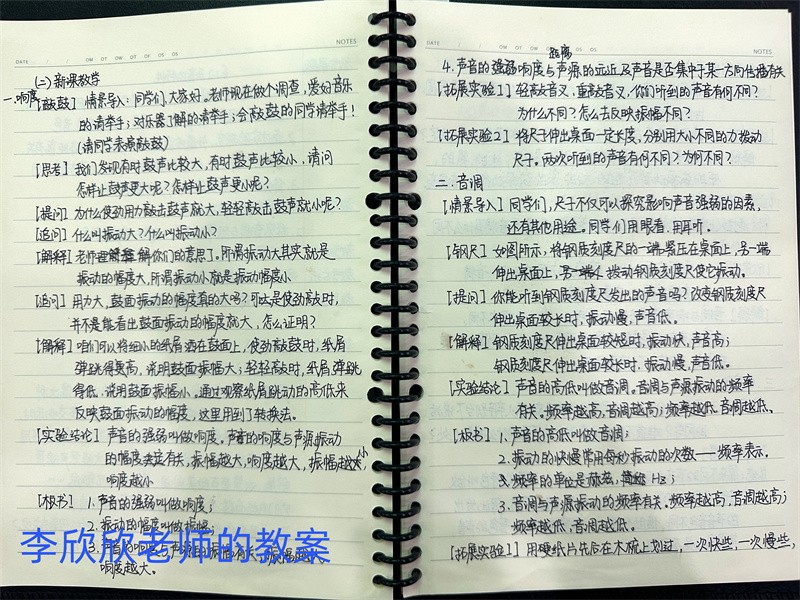 DATE
NOTES
(二)新课教学
一.响度
[敲鼓] 情景导入:同学们,大家好。老师现在做个调查,爱好音乐
的请举手;对乐器了解的请举手;会敲鼓的同学请举手!
(请同学表演敲鼓)
[思考] 我们发现有时鼓声比较大,有时鼓声比较小,请问
怎样让鼓声更大呢?怎样让鼓声更小呢?
[提问] 为什么使劲用力敲击鼓声就大,轻轻敲击鼓声就小呢?
[追问] 什么叫振动大?什么叫振动小?
[解释] 老师理解你们的意思了。所谓振动大其实就是
振动的幅度大,所谓振动小就是振动幅度小
[追问] 用力大,鼓面振动的幅度真的大吗?可是使劲敲时,
并不是能看出鼓面振动的幅度就大,怎么证明?
[解释] 咱们可以将细小的纸屑洒在鼓面上,使劲敲鼓时,纸屑
弹跳得更高,说明鼓面振幅大;轻轻敲时,纸屑弹跳
得低,说明鼓面振幅小。通过观察纸屑跳动的高低来
反映鼓面振动的幅度,这里用到了转换法。
[实验结论] 声音的强弱叫做响度。声音的响度与声源振动
的幅度有关,振幅越大,响度越大,振幅越小,
响度越小
[板书] 1.声音的强弱叫做响度;
2.振动的幅度叫做振幅;
3.声音的响度与声源的振幅有关,振幅越大,
响度越大。
李欣欣老师的教案
DATE
NOTES
4.声音的强弱响度与声源的远近距离及声音是否集中于某一方向传播有关
[拓展实验1] 轻敲音叉,重敲音叉,你们听到的声音有何不同?
为什么不同?怎么去反映振幅不同?
[拓展实验2] 将尺子伸出桌面一定长度,分别用大小不同的力拨动
尺子。两次听到的声音有何不同?为何不同?
二.音调
[情景导入] 同学们,尺子不仅可以探究影响声音强弱的因素,
还有其他用途。同学们用眼看,用耳听。
[钢尺] 如图所示,将钢质刻度尺的一端紧压在桌面上,另一端
伸出桌面上,拨动钢质刻度尺使它振动。
[提问] 你能听到钢质刻度尺发出的声音吗?改变钢质刻度尺
伸出桌面较长时,振动慢,声音低。
[解释] 钢质刻度尺伸出桌面较短时,振动快,声音高;
钢质刻度尺伸出桌面较长时,振动慢,声音低。
[实验结论] 声音的高低叫做音调。音调与声源振动的频率
有关。频率越高,音调越高;频率越低,音调越低。
[板书] 1.声音的高低叫做音调;
2.振动的快慢常用每秒振动的次数——频率表示。
频率的单位是赫兹,简称 Hz;
3.音调与声源振动的频率有关。频率越高,音调越高;
频率越低,音调越低。
[拓展实验1] 用硬纸片先后在木梳上划过,一次快些,一次慢些,